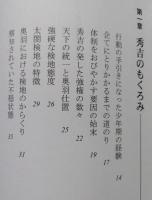 第一章
秀吉のもくろみ
行動の手引きになった少年期の経験 14
企てにとりかかるまでの道のり 17
体制をおびやかす要因の始末 19
秀吉の発した強権の数々 22
天下の統一と奥羽仕置 25
強硬な検地態度 26
太閤検地の特徴 29
奥羽における検地のからくり 31
横領されていた不穏状態 35